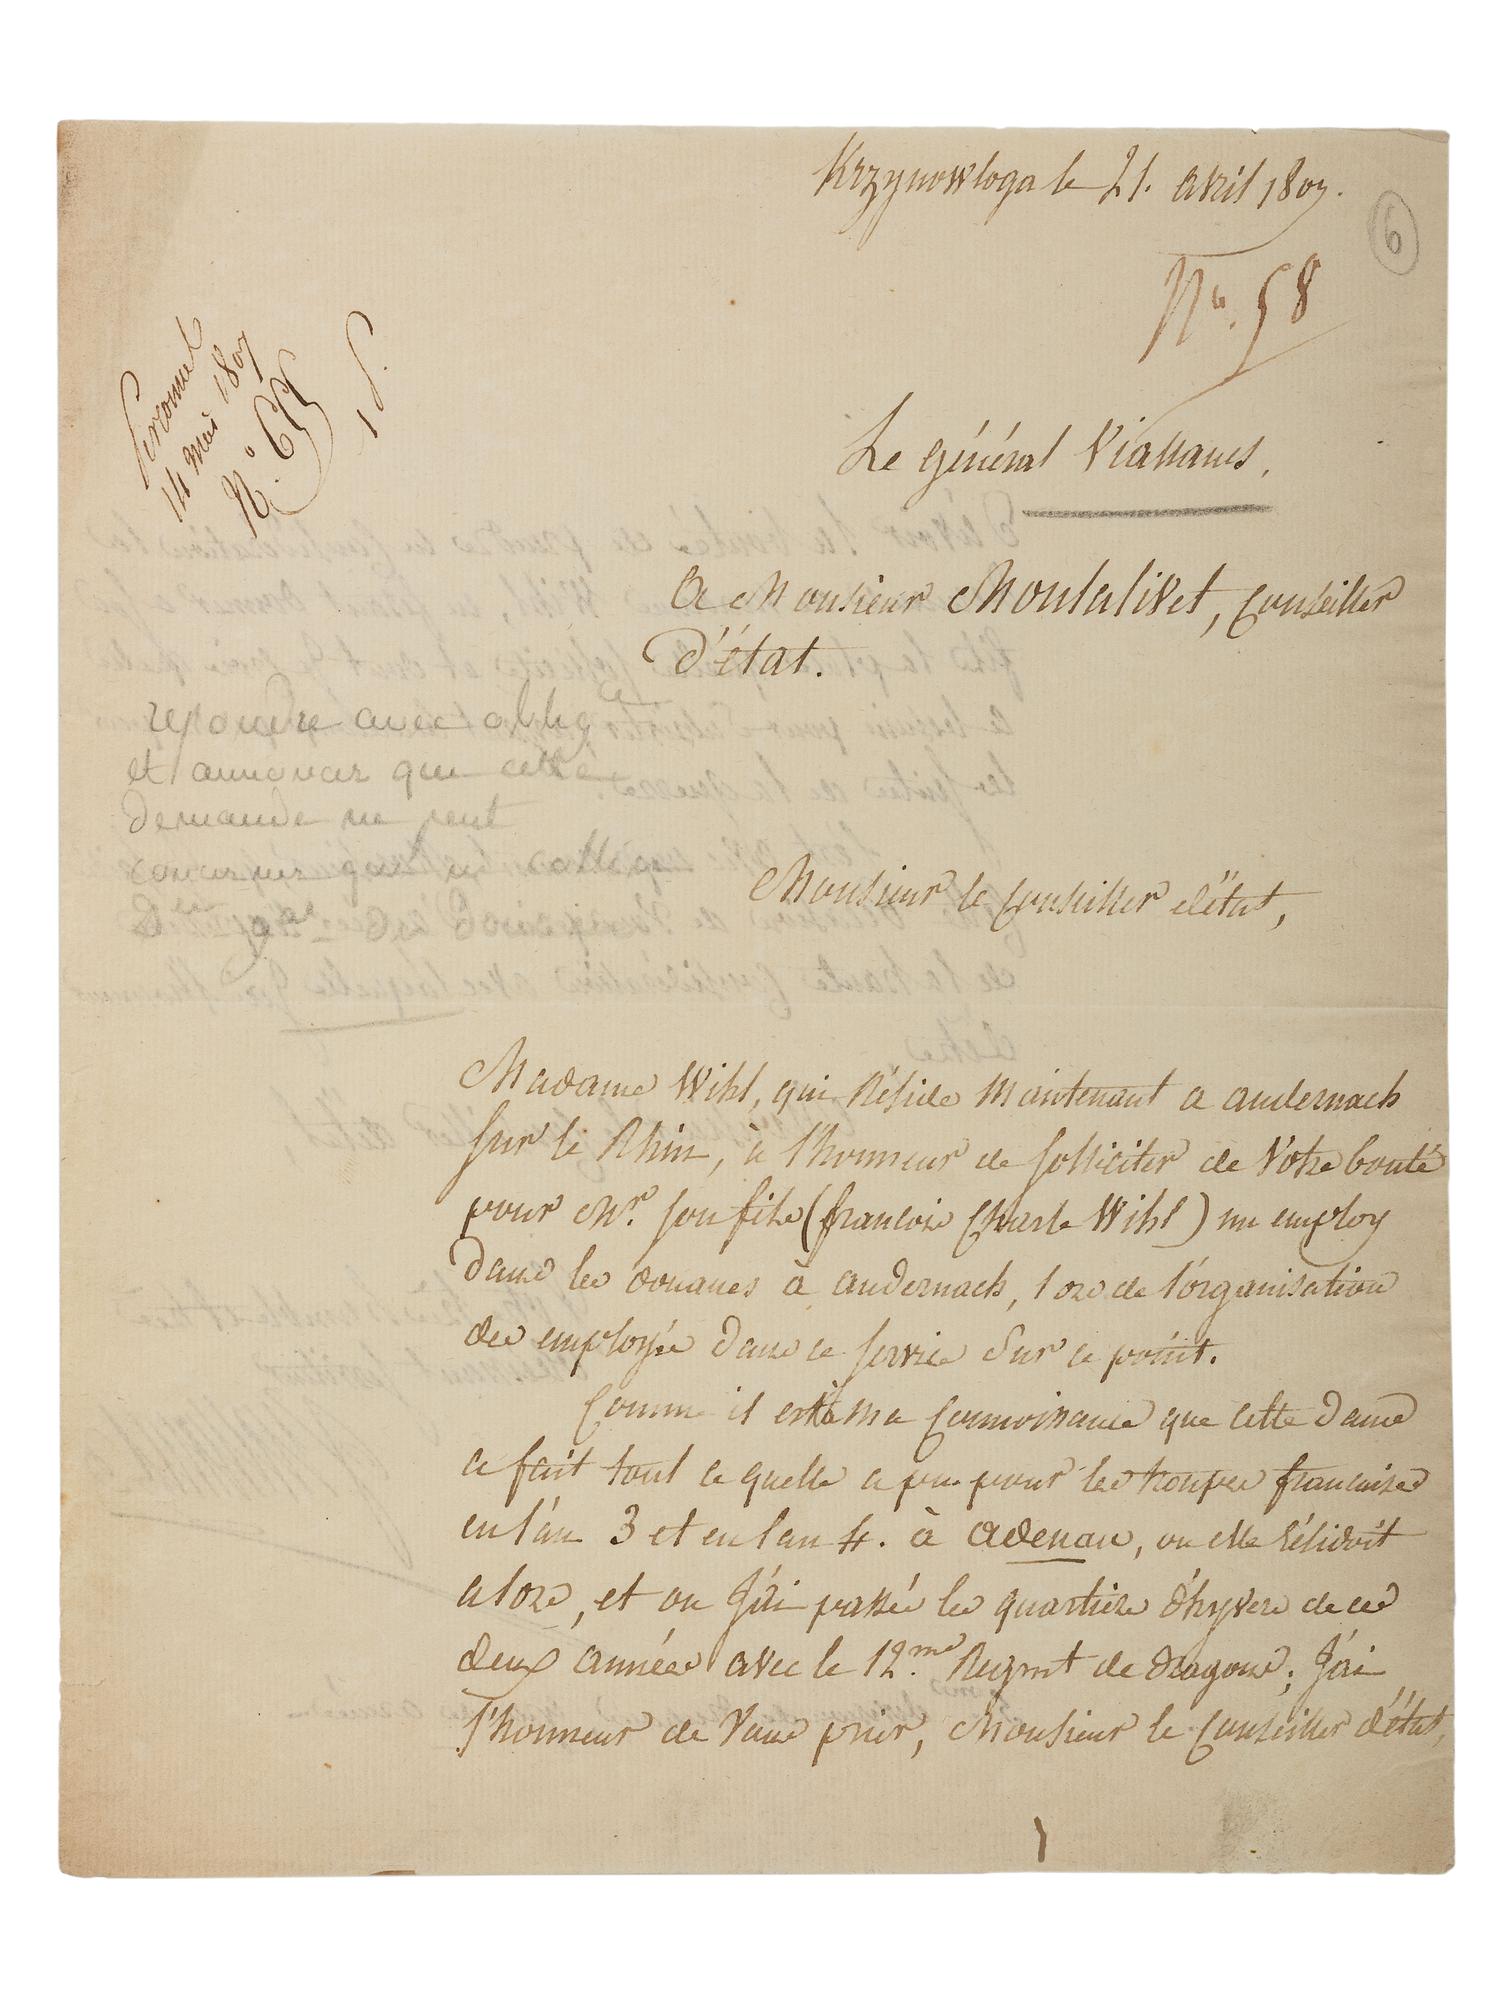 Krzynowloga le 21. avril 1807.
6
N.º 58
personnel
14 Mai 1807
N.º 65
1 S.
Le général Viallanes,
A Monsieur Montalivet, Conseiller
d'état.
repondre avec oblig.
et annoncer que cette
demande ne peut
concerner que
Monsieur le Conseiller d'état,
Madame Wihl, qui Réside Maintenant a andernach
sur le Rhin, à l'honneur de solliciter de Votre bonté
pour Mr. son fils (francois Charle Wihl) un employ
dans les douanes à andernach, lors de l'organisation
des employés dans ce service sur ce point.
Comme il est à ma Connoissance que cette dame
a fait tout ce quelle a pu pour les troupes francaises
en l'an 3 et en l'an 4. à Adenau, ou elle Résidoit
alors, et ou J'ai passé les quartiers d'hyvers de ces
deux années avec le 12.me Regmt de dragons; J'ai
l'honneur de Vous prier, Monsieur le Conseiller d'état,